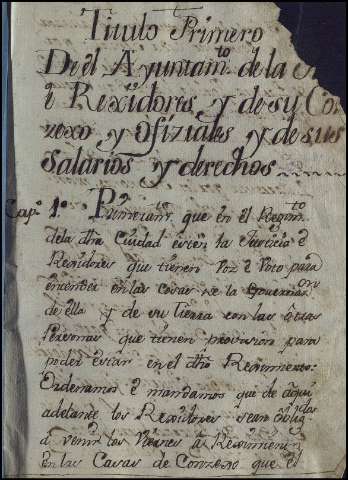 Titulo Primero
De el Ayuntam.to de la
é Rexidores y de su Con
zexo y ofiziales y de sus
Salarios y derechos
Cap.o 1.o Primeram.te que en el Regim.to
dela dha Ciudad esten la Justicia é
Rexidores que tienen Voz é Voto para
entender en las cosas de la Governaz.on
de ella y de su Tierra con las otras
Personas que tienen provision para
poder estar en el dho Reximiento:
Ordenamos é mandamos que de aqui
adelante los Rexidores sean oblig
ados
á venir los Viernes á Reximien
en las Casas de Conzexo que el